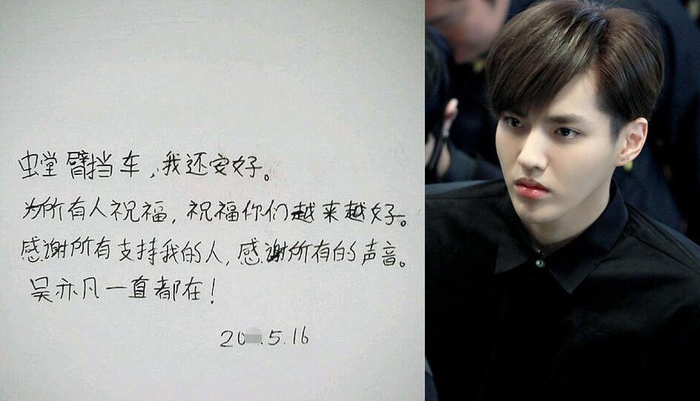 螳臂挡车，我还安好。
为所有人祝福，祝福你们越来越好。
感谢所有支持我的人，感谢所有的声音。
吴亦凡一直都在！
20 .5.16